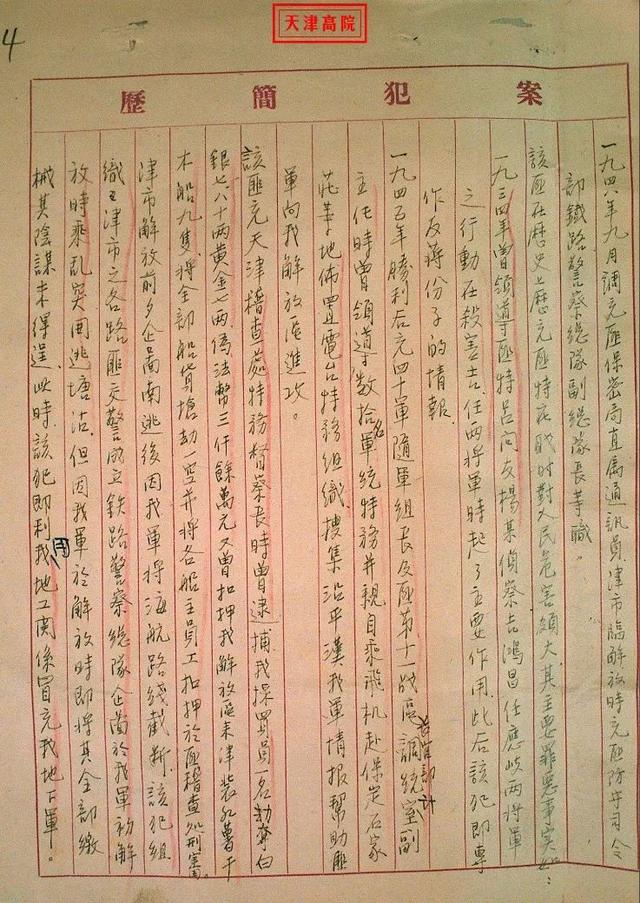 天津高院
4
案犯簡歷
一九四八年九月調充匪保密局直屬通訊員津市臨解放時充匪防守司令
部鐵路警察總隊副總隊長等職。
該匪在歷史上歷充匪特在職时對人民危害頗大其主要罪惡事实如:
一九三四年曾領導匪特呂向友楊某偵察吉鴻昌任應岐兩将軍
之行動在殺害吉、任两将軍時起了主要作用此后該犯即專
作反蒋份子的情報.
一九四五年勝利后充四十軍随軍組長及匪第十一战區長官部調統室副
主任時曾領導数拾名軍統特務并親自乘飛机赴保定石家
莊等地佈置電台特務組織搜集沿平漢我軍情报幫助匪
軍向我解放區進攻。
該匪充天津稽查處特務督察長時曾逮捕我採買員一名劫奪白
銀七八十两黄金七两偽法幣三仟餘萬元又曾扣押我解放區來津裝
木船九隻将全部船貨搶劫一空并将各船主員工扣押於匪稽查处刑
津市解放前夕企啚南逃後因我軍将海航路綫截断該犯組
織了津市之各路匪交警成立鉄路警察總隊企啚於我軍初解
放時乘乱突围逃塘沽但因我軍於解放時即将其全部繳
械其陰謀未得逞、此時該犯即利用我地工関係冒充我地下軍。